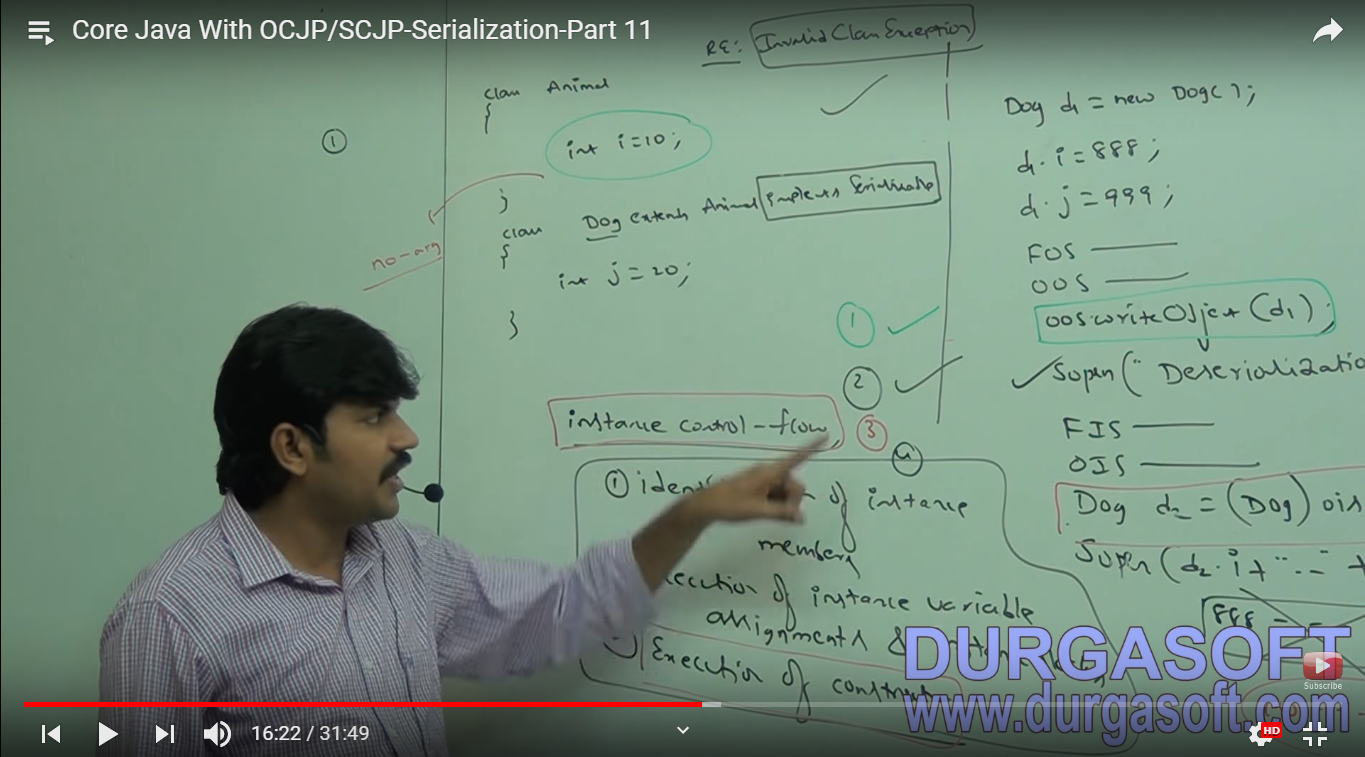 Core Java With OCJP/SCJP-Serialization-Part 11
RE: InvalidClassException
class Animal
{
int i=10;
}
①
no-arg
class Dog extends Animal implements Serializable
{
int j=20;
}
① 
②
③
④
instance control-flow
① of instance
members
of instance variable
assignments &
Execution of
Dog d1 = new Dog();
d1.i=888;
d1.j=999;
FOS
OOS
oos.writeObject(d1);
Sopln("Deserializatio
FIS
OIS
Dog d2 = (Dog) ois
Sopln(d2.i+"---"+
888 ---
DURGASOFT
www.durgasoft.com
Subscribe
16:22 / 31:49
HD